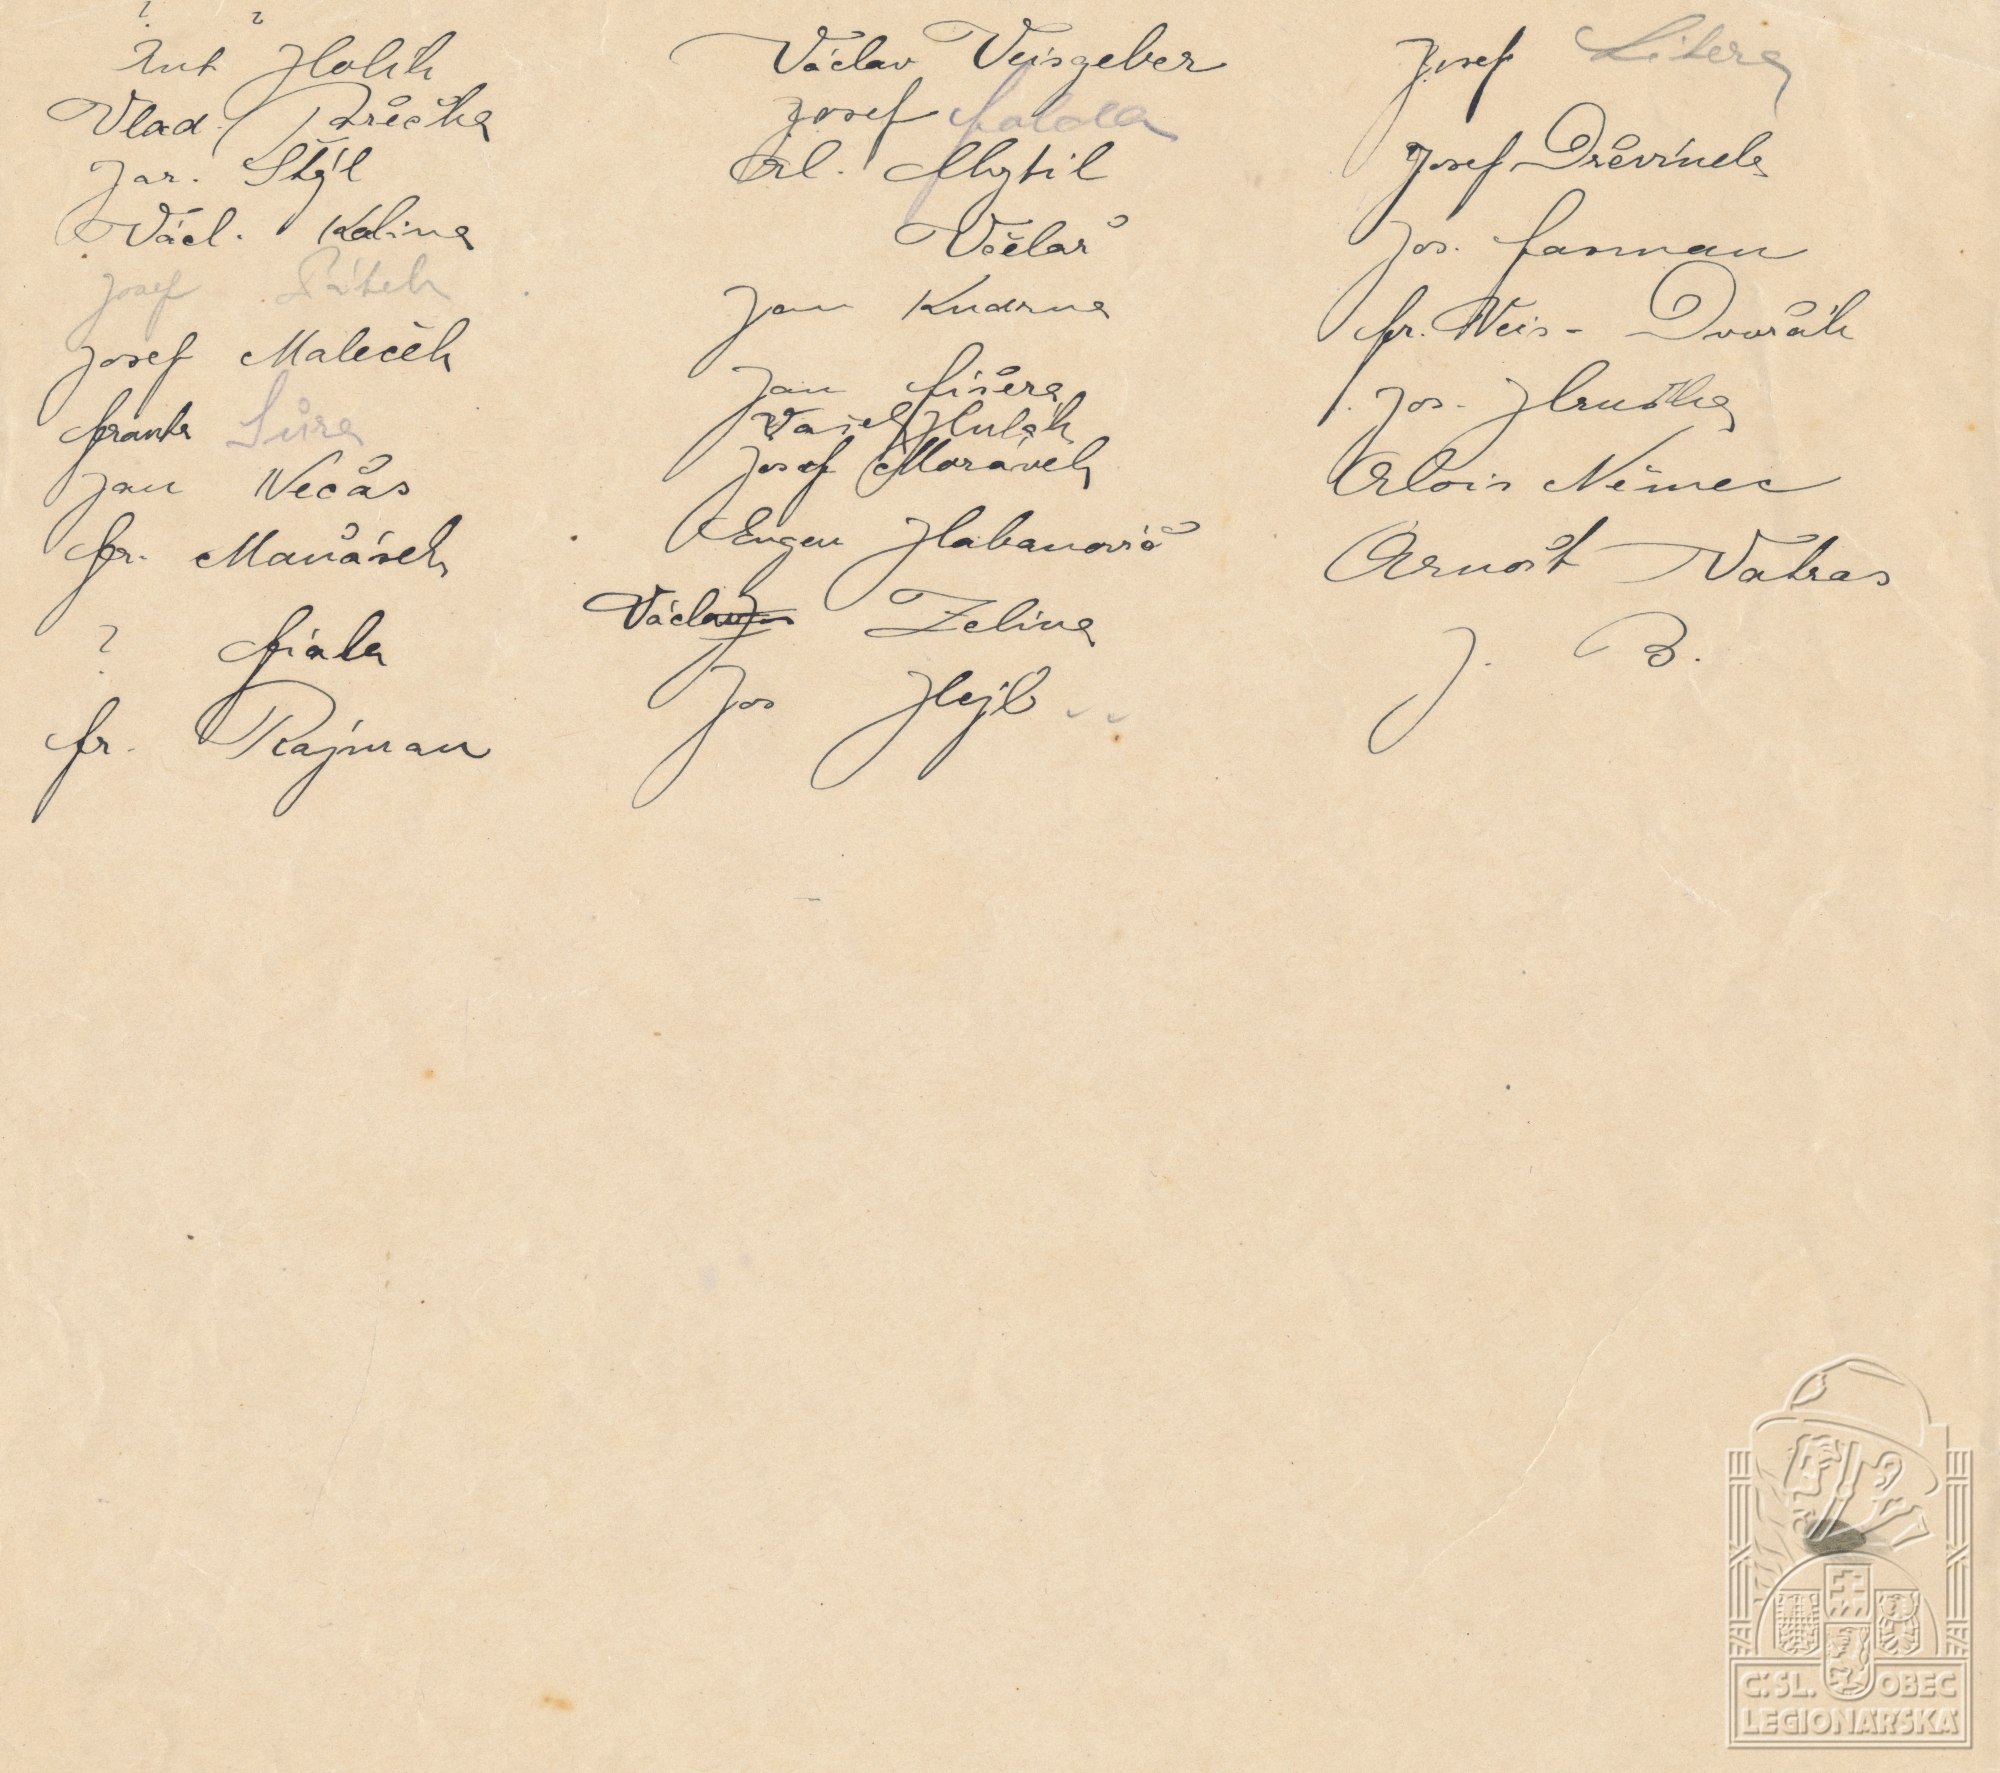 ? ?
Ant Holík
Vlad. Pařečka
Jar. Štýl
Václ. Kalina
Josef Pátek
Josef Maleček
Franta Sůra
Jan Nečas
Fr. Maňásek
? Fiala
Fr. Rajman
Václav Veisgeber
Josef Falda
Al. Chytil
Včelař
Jan Kudrna
Jan Fišera
Vašek Hulák
Josef Morávek
Eugen Habanovič
Václav Zelina
Jos Hejl
Josef Litera
Josef Dřevínek
Jos. Farman
Fr. Weis - Dvořák
Jos. Hruška
Alois Němec
Arnošt Vatras
J. B.
Č.SL. OBEC
LEGIONÁŘSKÁ